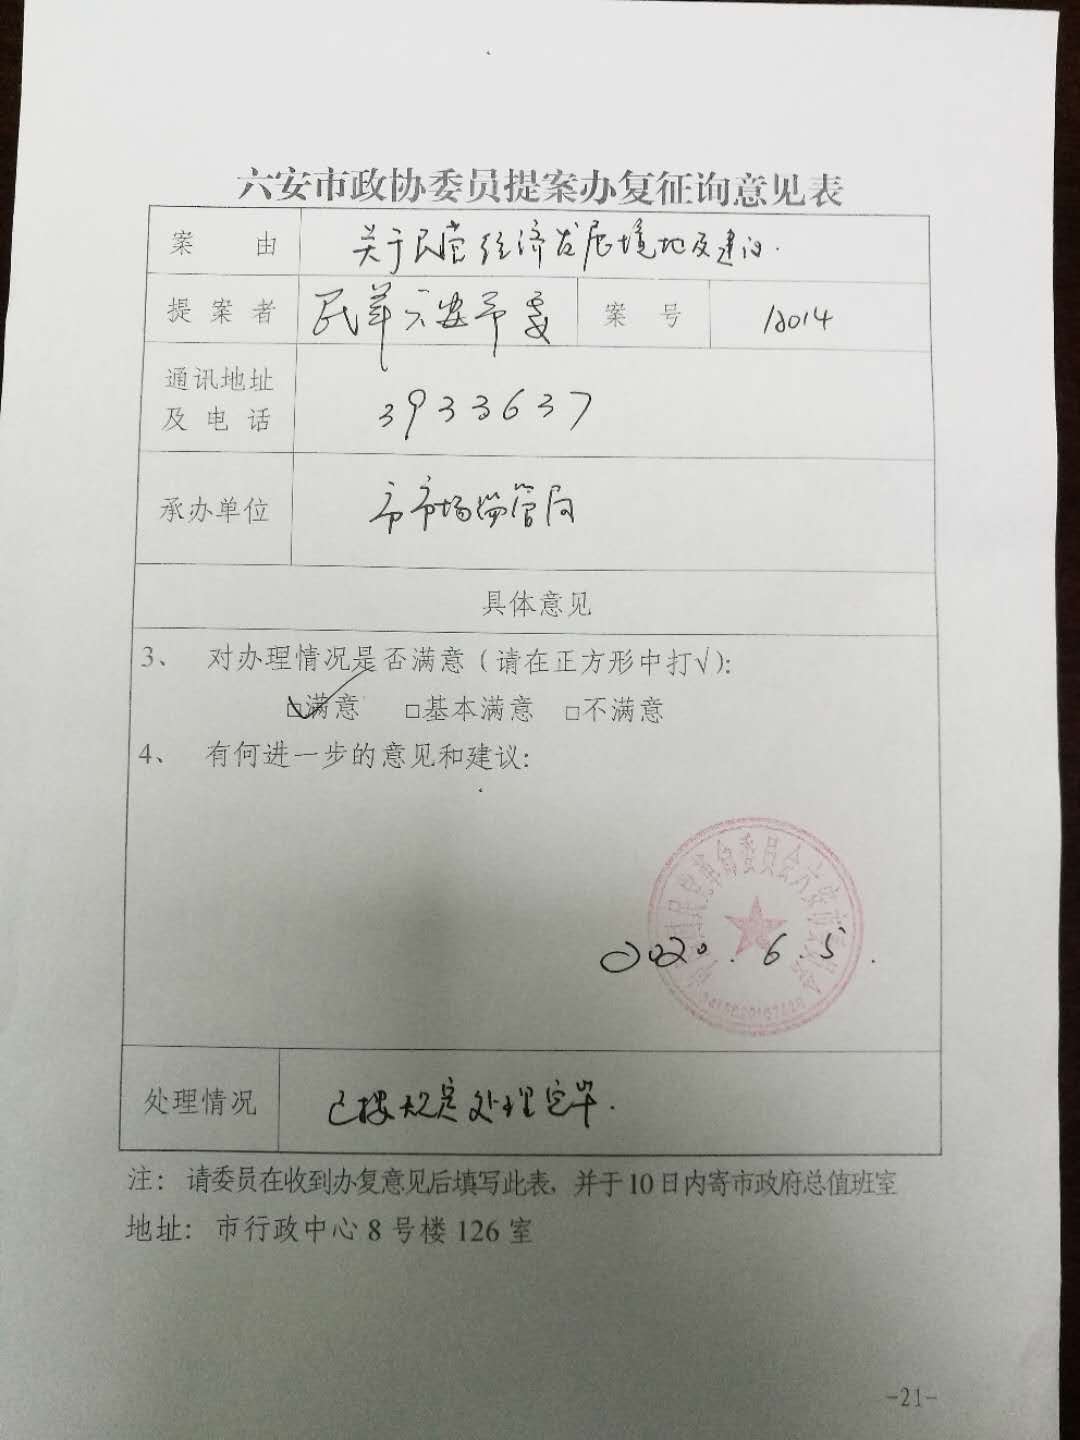 六安市政协委员提案办复征询意见表
案由 关于民营经济发展境地及建议.
提案者 民革六安市委 案号 12014
通讯地址及电话 3933637
承办单位 市市场监管局
具体意见
3、 对办理情况是否满意(请在正方形中打√):
☑满意 □基本满意 □不满意
4、 有何进一步的意见和建议:
民党革命委员会六安市
2020.6.5.
处理情况 已按规定处理完毕.
注: 请委员在收到办复意见后填写此表, 并于10日内寄市政府总值班室
地址: 市行政中心8号楼126室
-21-